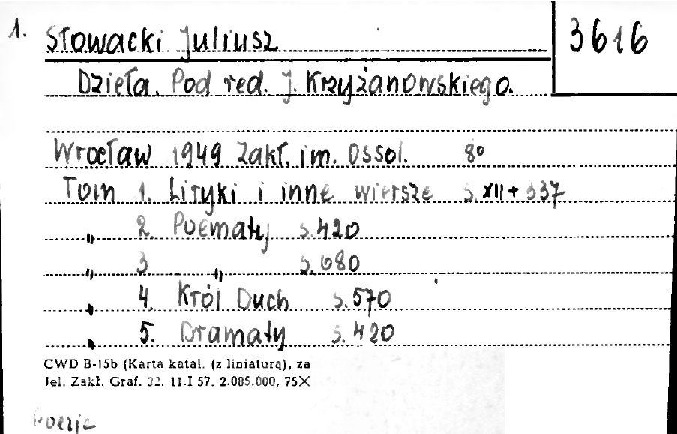 1. Słowacki Juliusz 3616
Dzieła. Pod red. J. Krzyżanowskiego.
Wrocław 1949 Zakł. im. Ossol. 8°
Tom 1. Liryki i inne wiersze s. XII + 337
" 2. Poematy s. 420
" 3 " s. 680
" 4. Król Duch s. 570
" 5. Dramaty s. 420
CWD B-15b (Karta katal. (z liniaturą), za
Jel. Zakł. Graf. 32. 11.I 57. 2.085.000, 75X
Poezje